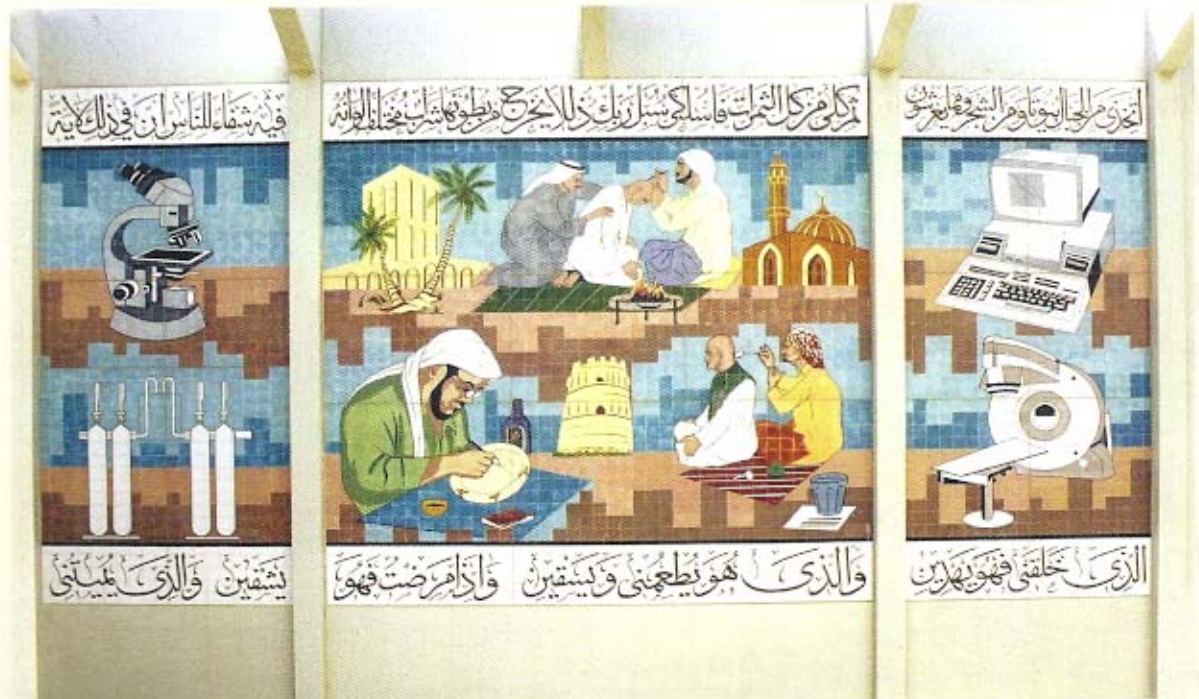 اتخذى من الجبال بيوتا ومن الشجر ومما يعرشون
ثم كلى من كل الثمرات فاسلكى سبل ربك ذللا يخرج من بطونها شراب مختلف الوانه
فيه شفاء للناس ان في ذلك لاية
الذى خلقنى فهو يهدين
والذى هو يطعمنى ويسقين واذا مرضت فهو
يشفين والذى يميتنى